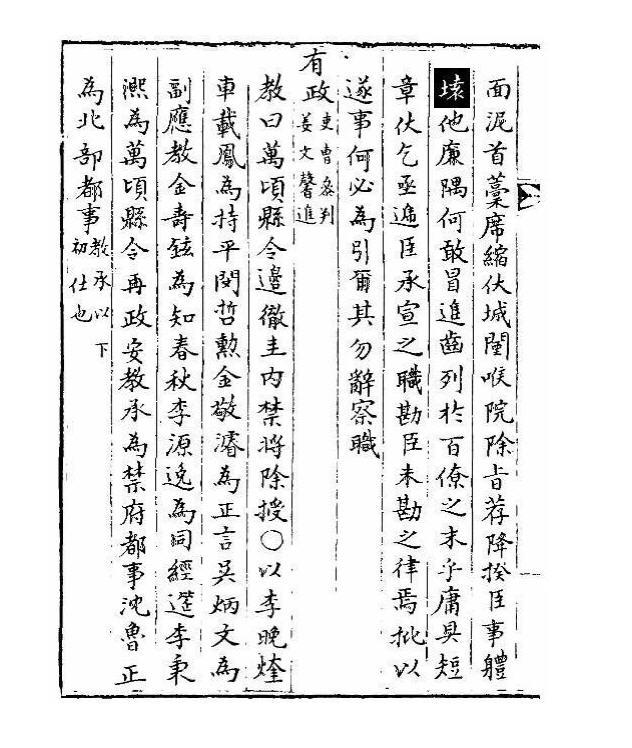 面泥首藁席縮伏城闉喉院除旨荐降揆臣事體
壊他廉隅何敢冒進齒列於百僚之末乎庸具短
章伏乞亟遞臣承宣之職勘臣未勘之律焉批以
遂事何必為引爾其勿辭察職
有政吏曹參判姜文馨進
教曰萬頃縣令邉徹圭内禁將除授○以李晚煃
車載鳳為持平閔哲勲金敬濬為正言吳炳文為
副應教金壽鉉為知春秋李源逸為同經筵李秉
𤋮為萬頃縣令再政安教承為禁府都事沈魯正
為北部都事教承以下初仕也